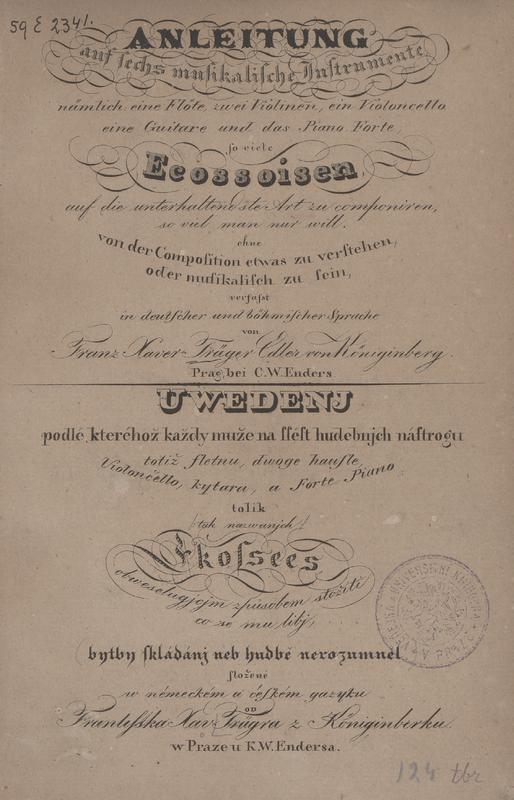 59 E 2341.
ANLEITUNG
auf sechs musikalische Instrumente,
nämlich eine Flöte, zwei Violinen, ein Violoncello
eine Guitare und das Piano Forte,
so viele
Ecossoisen
auf die unterhaltendste Art zu componiren,
so viel man nur will.
ohne
von der Composition etwas zu verstehen,
oder musikalisch zu sein,
verfasst
in deutscher und böhmischer Sprache
von
Franz Xaver Träger Edler von Königinberg.
Prag, bei C.W. Enders
UWEDENJ
podlé kteréhož každy muže na ssést hudebnjch nástrogu
totiž fletnu, dwoge hausle,
Violončello, kytaru, a Forte Piano
tolik
(tak nazwanjch)
Ekossees
obweselugjcjm způsobem složiti
co se mu libj,
(bytby skládánj neb hudbě nerozumněl
složené
w německém a českém gazyku
od
Frantisska Xav. Trägra z Königinberku
w Praze u K.W. Endersa.
124 tbr